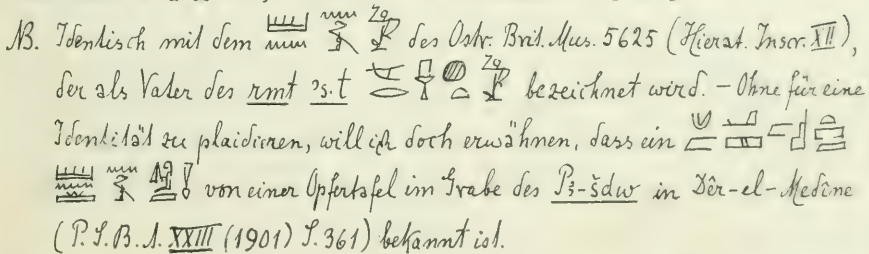 NB. Identisch mit dem des Ostr. Brit. Mus. 5625 (Hierat. Inscr. XII),
der als Vater des rmt ꜣs.t bezeichnet wird. – Ohne für eine
Identität zu plaidieren, will ich doch erwähnen, dass ein
von einer Opfertafel im Grabe des Pꜣ-šdw in Dêr-el-Medîne
(P.S.B.A. XXIII (1901) S. 361) bekannt ist.